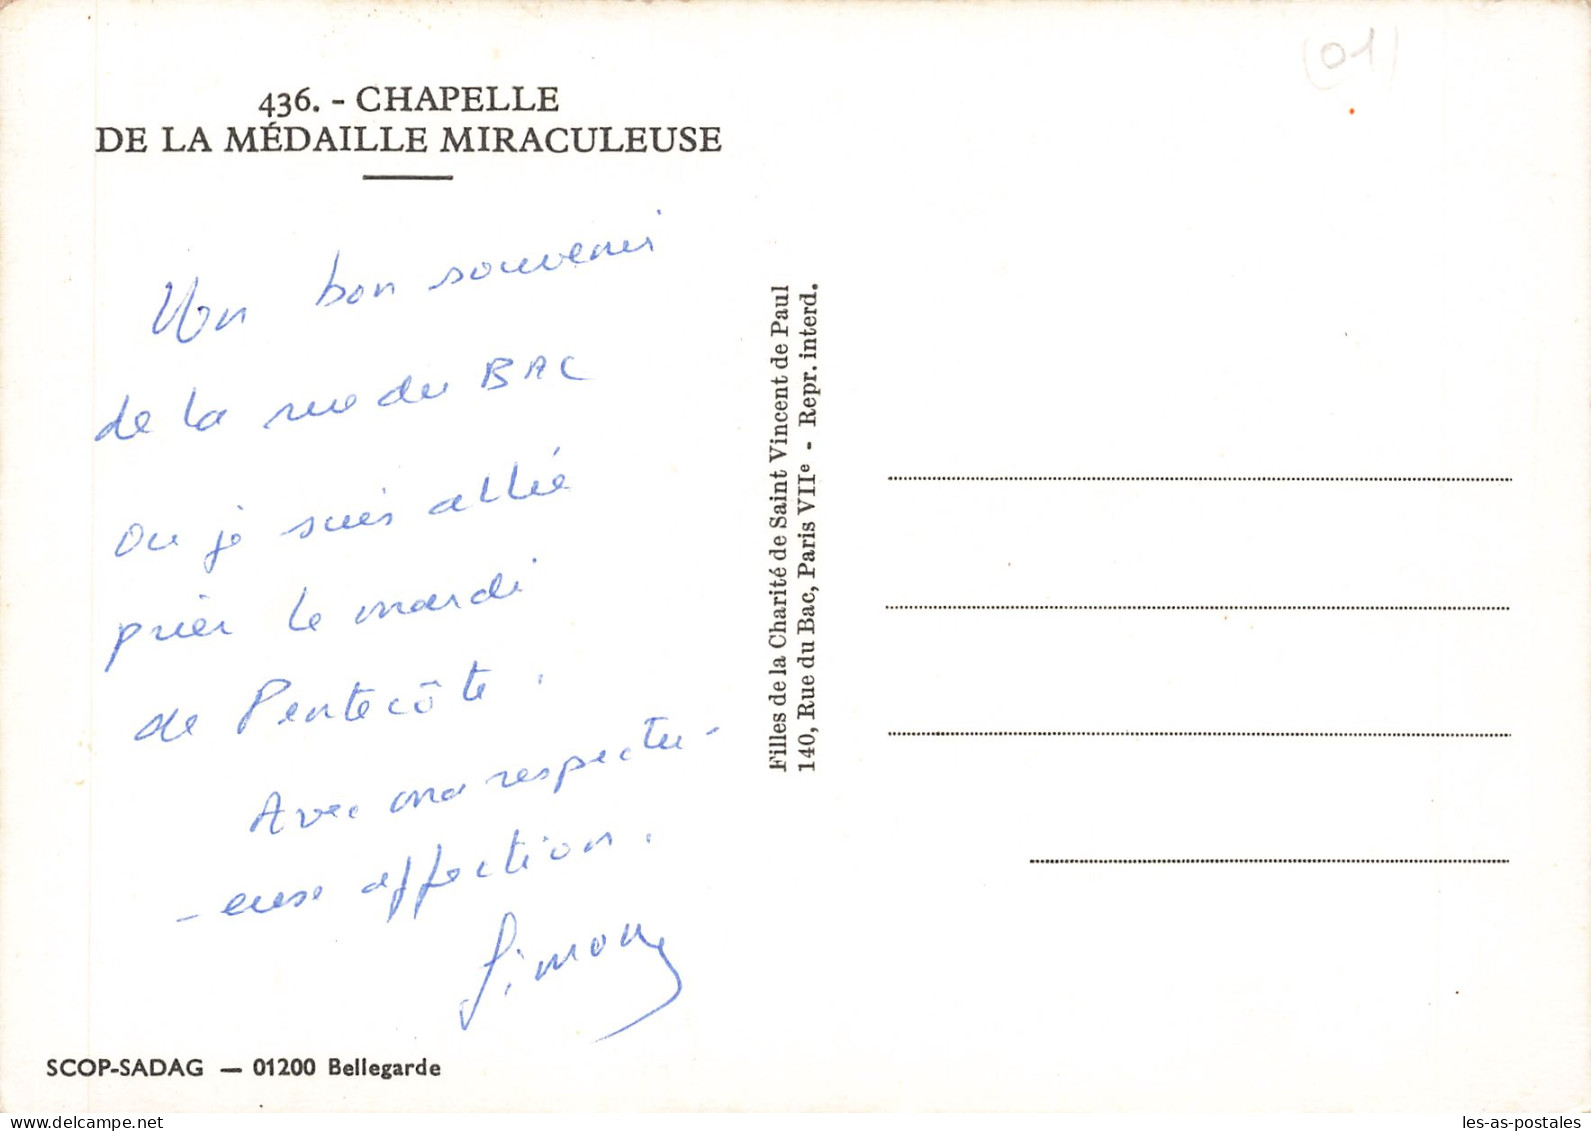 (01)
436. - CHAPELLE
DE LA MÉDAILLE MIRACULEUSE
Un bon souvenir
de la rue du BAC
ou je suis allée
prier le mardi
de Pentecôte.
Avec ma respectu-
-euse affection.
Simone
Filles de la Charité de Saint Vincent de Paul
140, Rue du Bac, Paris VIIe - Repr. interd.
SCOP-SADAG — 01200 Bellegarde
delcampe.net
les-as-postales